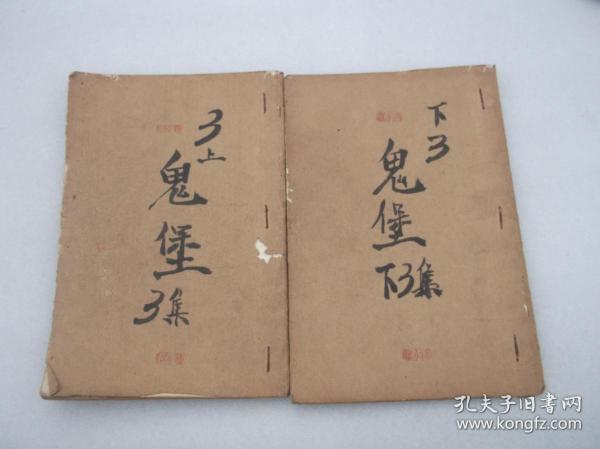 3
上
鬼
堡
3集
下
3
鬼
堡
下3集
孔夫子旧书网
www.kongfz.com